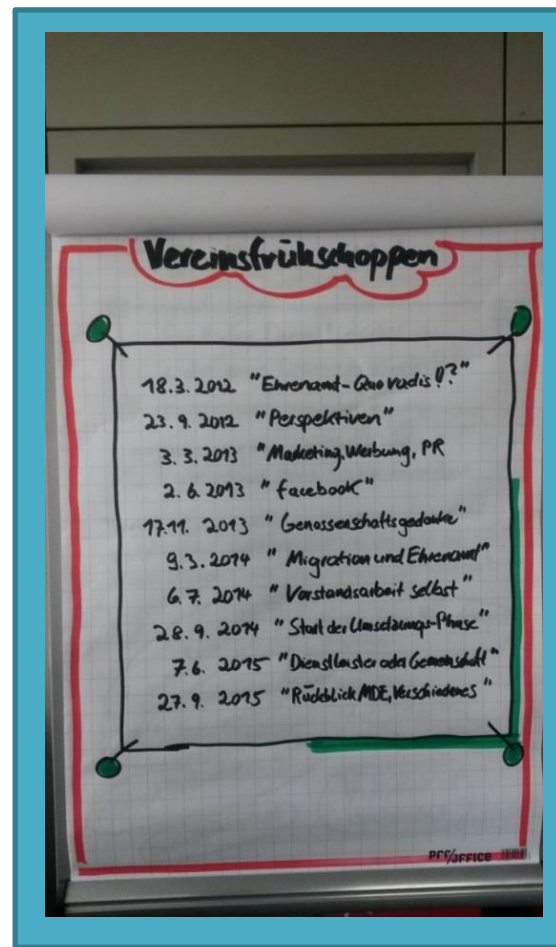 Vereinsfrühschoppen
18.3.2012 "Ehrenamt-Quo vadis!?"
23.9.2012 "Perspektiven"
3.3.2013 "Marketing, Werbung, PR
2.6.2013 "facebook"
17.11.2013 "Genossenschaftsgedanke"
9.3.2014 "Migration und Ehrenamt"
6.7.2014 "Vorstandsarbeit selbst"
28.9.2014 "Start der Umsetzungs-Phase"
7.6.2015 "Dienstleister oder Gemeinschaft"
27.9.2015 "Rückblick MDE, Verschiedenes"
PRO/OFFICE